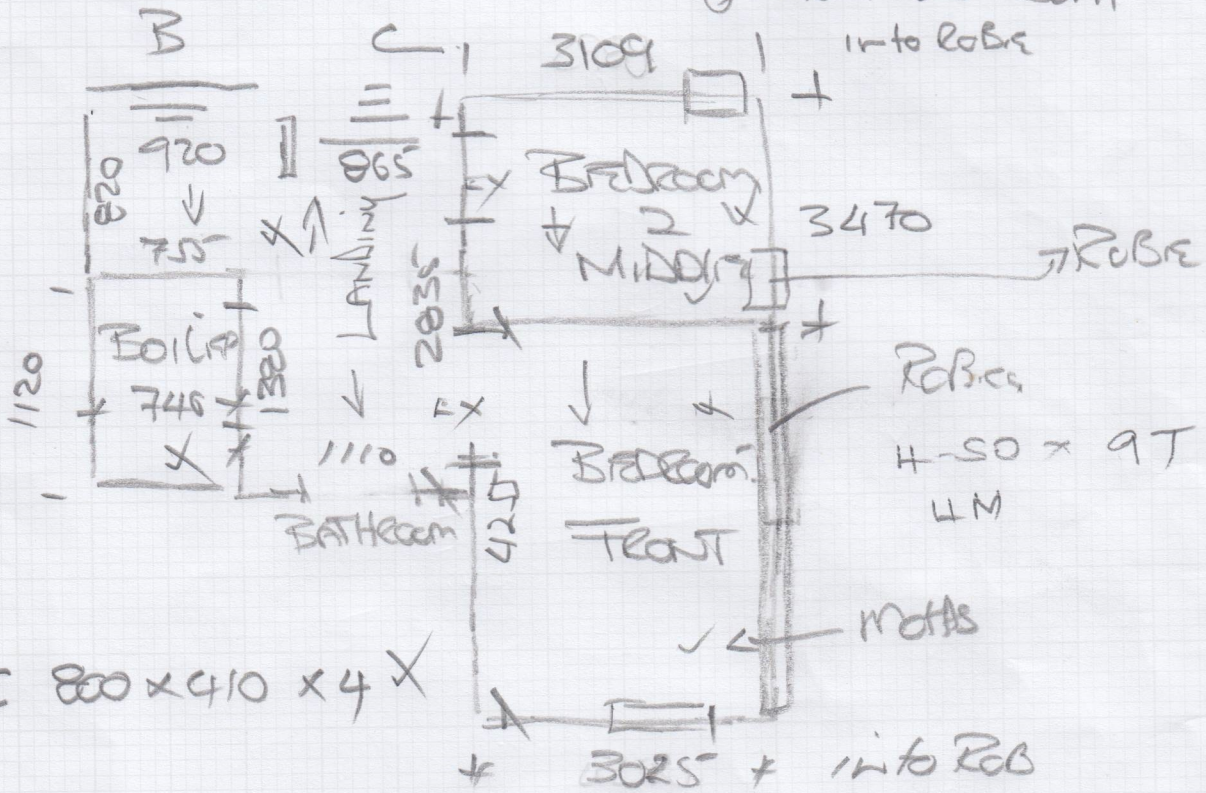 B
C
3109
into ROBE
920
820
755
865
X
LANDING
EX
BEDROOM
2
MIDDLE
3470
ROBE
2835
BOILER
746
1120
1380
X
1110
EX
BATHROOM
425
BEDROOM
FRONT
ROBES
4-50 x 9T
4M
MOTHS
800 x 410 x 4 X
3025
into ROB